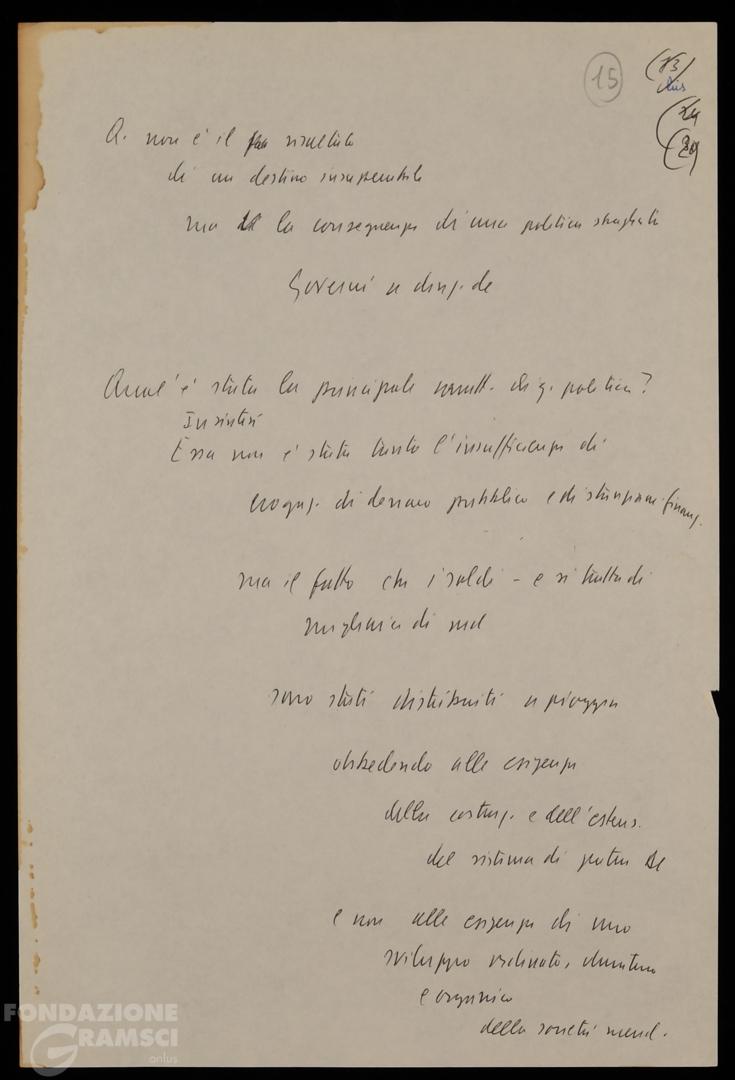 15
(13)
bis
(14
(20)
Q. non è il risultato
di un destino insuperabile
ma la conseguenza di una politica sbagliata
Governi a direz. dc
Qual'è stata la principale di q. politica?
In sintesi
Essa non è stata tanto l'insufficienza di
erogaz. di denaro pubblico e di finanz.
ma il fatto che i soldi – e si tratta di
migliaia di mld
sono stati distribuiti a pioggia
obbedendo alle esigenze
della costruz. e dell'estens.
del sistema di potere dc
e non alle esigenze di uno
sviluppo ordinato, duraturo
e organico
della società merid.
FONDAZIONE
GRAMSCI
onlus